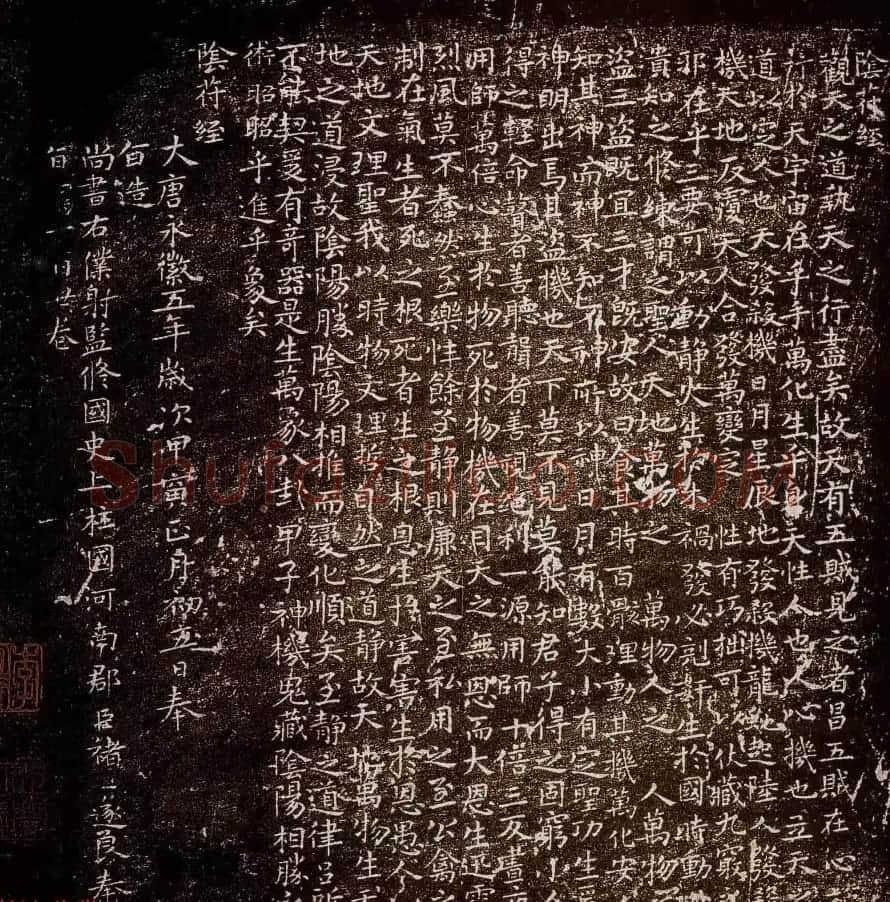 陰符經
觀天之道執天之行盡矣故天有五賊見之者昌五賊在心
行於天宇宙在乎手萬化生乎身天性人也人心機也立天之
道以定人也天發殺機日月星辰地發殺機龍蛇起陸人發殺
機天地反覆天人合發萬變定性有巧拙可以伏藏九竅
邪在乎三要可以動靜火生於木禍發必剋奸生於國時動
貴知之修練謂之聖人天地萬物之 萬物人之 人萬物
盜三盜既宜三才既安故曰食其時百骸理動其機萬化安
知其神而神不知不神所以神日月有數大小有定聖功生焉
神明出焉其盜機也天下莫不見莫能知君子得之固窮小人
得之輕命瞽者善聽聾者善視絕利一源用師十倍三反晝夜
用師萬倍心生於物死於物機在目天之無恩而大恩生迅雷
烈風莫不蠢然至樂性餘至靜則廉天之至私用之至公禽之
制在氣生者死之根死者生之根恩生於害害生於恩愚人
天地文理聖我以時物文理哲自然之道靜故天地萬物生天
地之道浸故陰陽勝陰陽相推而變化順矣至靜之道律呂所
不能契爰有奇器是生萬象八卦甲子神機鬼藏陰陽相勝之
術昭昭乎進乎象矣
陰符經
大唐永徽五年歲次甲寅正月初五日奉
旨造
尚書右僕射監修國史上柱國河南郡臣褚遂良奉
旨 一百廿卷
Shufaziliao.COM